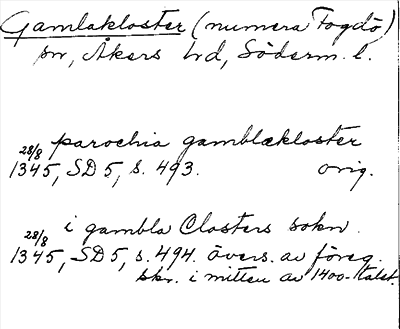 Gamlakloster (numera Fogdö)
sn, Åkers hd, Söderm. l.
parochia gamblækloster
28/8 1345, SD 5, s. 493. orig.
i gambla Closters sokn.
28/8 1345, SD 5, s. 494. övers. av föreg.
skr. i mitten av 1400-talet.